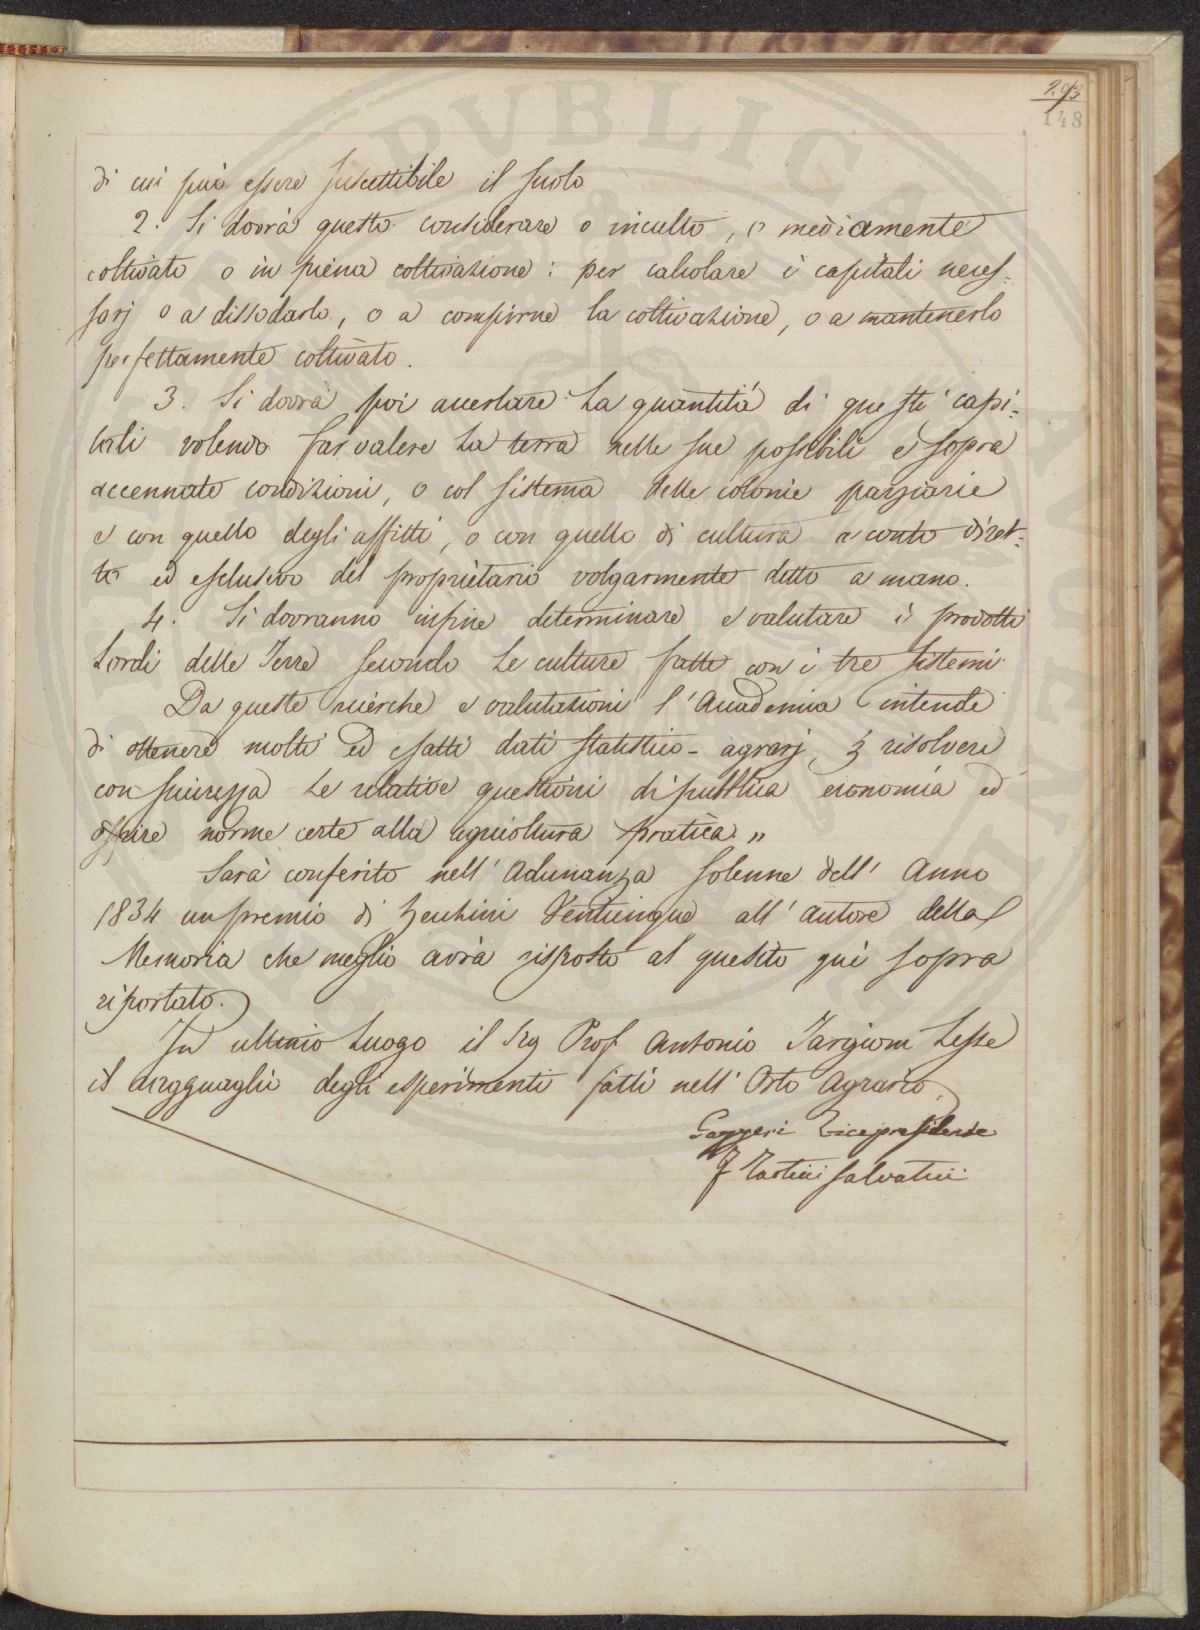 293
148
di cui può essere suscettibile il suolo
2. Si dovrà questo considerare o inculto, o mediamente
coltivato o in piena coltivazione: per calcolare i capitali neces-
sarj o a dissodarlo, o a compirne la coltivazione, o a mantenerlo
perfettamente coltivato.
3. Si dovrà poi accertare la quantità di questi capi-
tali volendo far valere la terra nelle sue possibili e sopra
accennate condizioni, o col sistema delle colonie parziarie
o con quello degli affitti, o con quello di cultura a conto diret-
to ed esclusivo del proprietario volgarmente detto a mano.
4. Si dovranno infine determinare e valutare i prodotti
Lordi delle Terre secondo le culture fatte con i tre sistemi.
Da queste ricerche e valutazioni l'Accademia intende
di ottenere molti ed esatti dati statistico-agrarj, risolvere
con sicurezza le relative questioni di pubblica economia ed
offrire norme certe alla agricoltura pratica."
Sarà conferito nell'Adunanza solenne dell'Anno
1834 un premio di Zecchini Venticinque all'autore della
Memoria che meglio avrà risposto al quesito quì sopra
riportato.
In ultimo luogo il Sig Prof Antonio Targioni Lesse
il ragguaglio degli esperimenti fatti nell'Orto Agrario.
Gazzeri Vicepresidente
F Tartini Salvatici